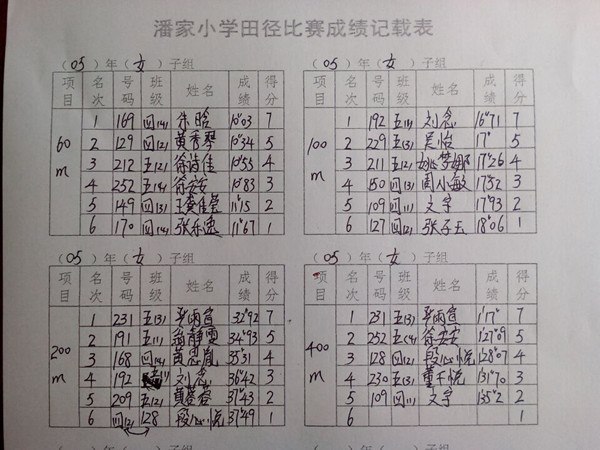 潘家小学田径比赛成绩记载表
（05）年（女）子组
项目 名次 号码 班级 姓名 成绩 得分
60m
1 169 四(4) 晗 10"03 7
2 129 四(2) 黄秀琴 10"34 5
3 212 五(2) 徐诗佳 10"55 4
4 252 五(4) 徐安安 10"83 3
5 149 四(3) 11"15 2
6 170 四(4) 张乐 11"67 1
（05）年（女）子组
项目 名次 号码 班级 姓名 成绩 得分
100m
1 192 五(1) 刘念 16"71 7
2 229 五(3) 吴怡 17" 5
3 211 五(2) 姚梦娜 17"26 4
4 150 四(3) 周小敏 17"52 3
5 109 四(1) 文宇 17"93 2
6 127 四(2) 张子玉 18"06 1
（05）年（女）子组
项目 名次 号码 班级 姓名 成绩 得分
200m
1 231 五(3) 32"92 7
2 191 五(1) 翁静雯 34"93 5
3 168 四(4) 黄思胤 35"31 4
4 192 刘念 36"42 3
5 209 五(2) 黄蓉蓉 37"43 2
6 四(2) 128 段心悦 37"49 1
（05）年（女）子组
项目 名次 号码 班级 姓名 成绩 得分
400m
1 231 五(3) 1'17" 7
2 252 五(4) 徐安安 1'27"09 5
3 128 四(2) 段心悦 1'28"07 4
4 230 五(3) 董千悦 1'31"70 3
5 109 四(1) 文宇 1'35"2 2
6 1